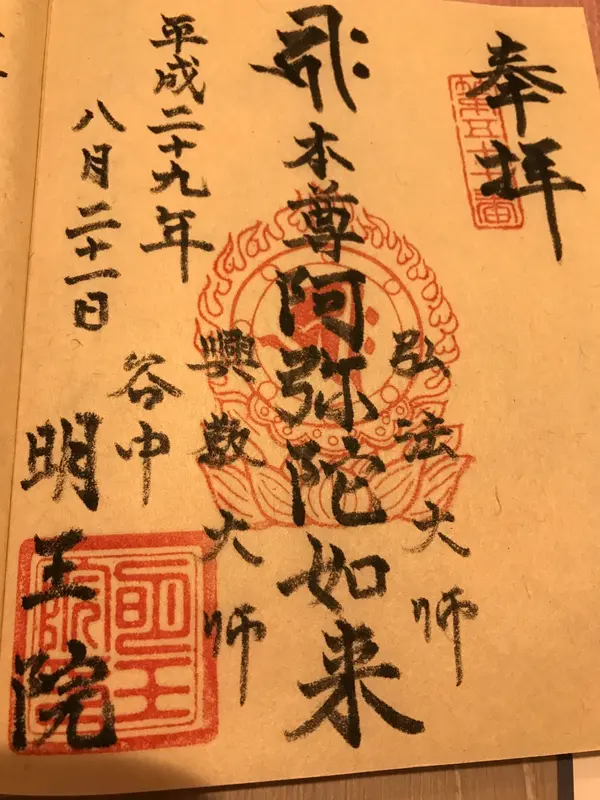 奉拝
弘法大师
本尊阿弥陀如来
興教大师
平成二十九年
八月二十一日
谷中
明王院